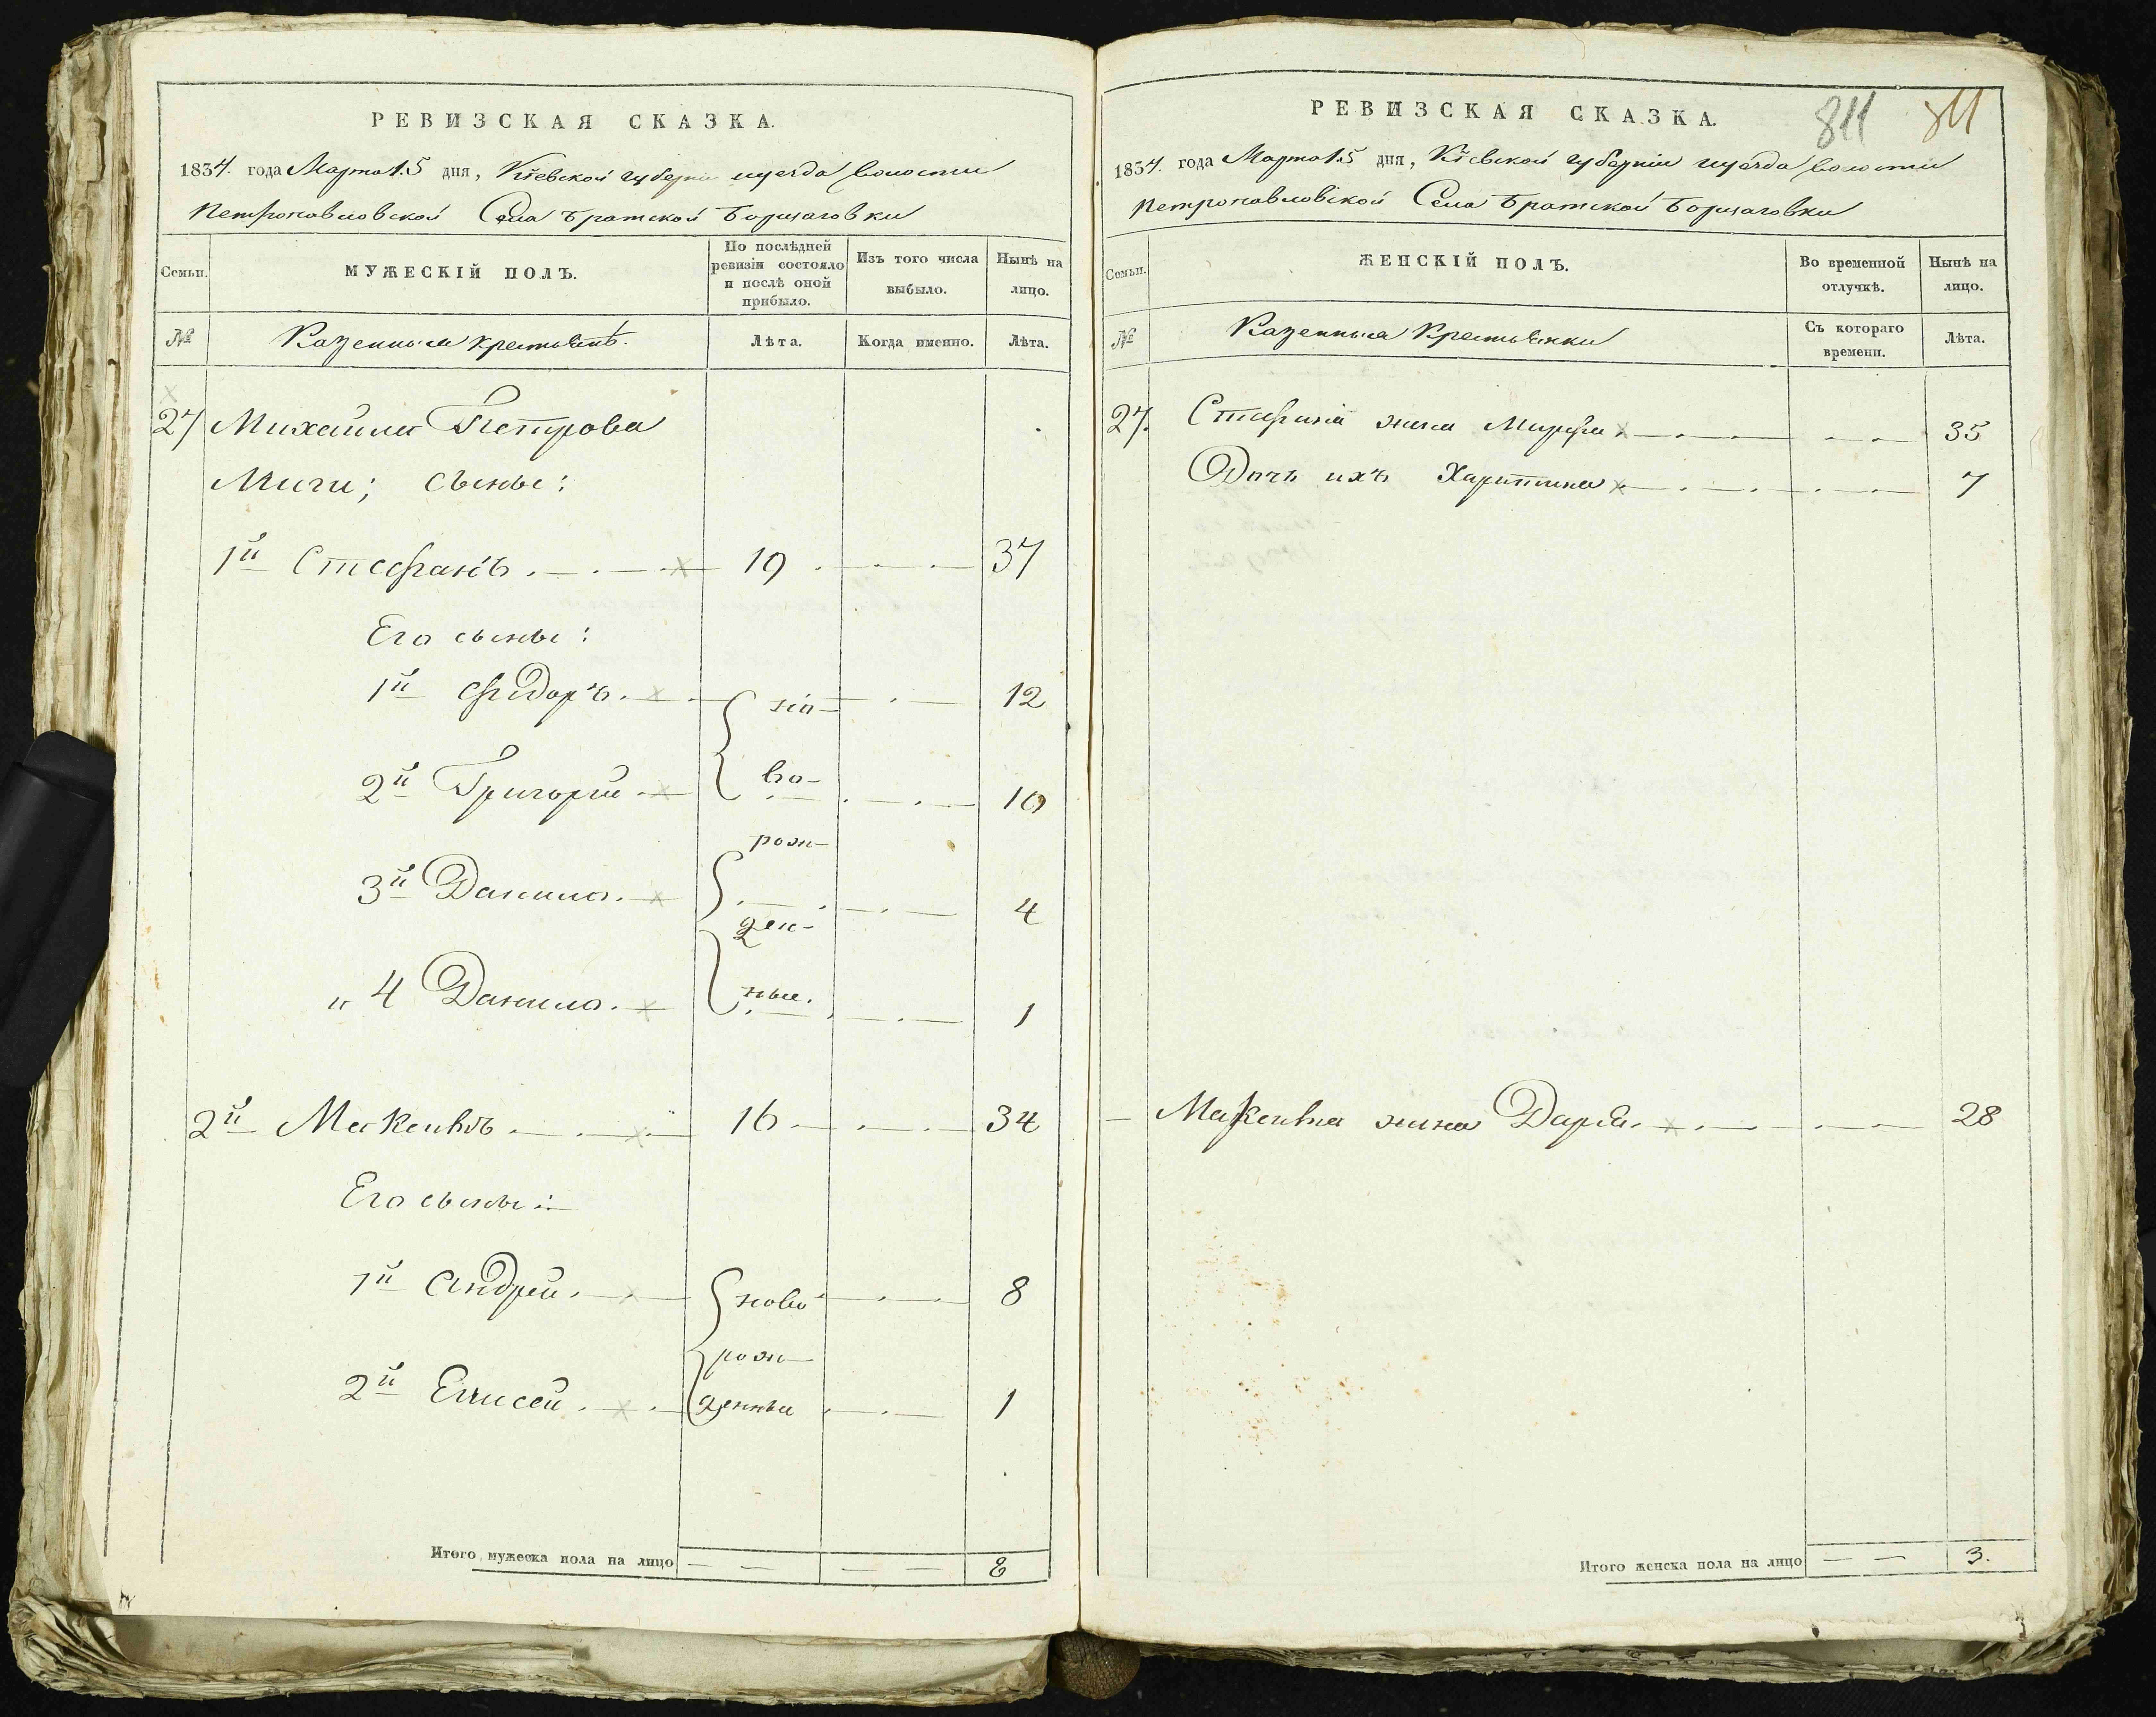 РЕВИЗСКАЯ СКАЗКА.
1834. года Марта 15 дня, Кіевской губерніи и уезда волости
Петропавловской Села Братской Борщаговки
Семьи.
МУЖЕСКІЙ ПОЛЪ.
По послѣдней
ревизіи состояло
и послѣ оной
прибыло.
Изъ того числа
выбыло.
Нынѣ на
лицо.
№
Казенныя крестьянѣ.
Лѣта.
Когда именно.
Лѣта.
27 Михайла Петрова
Миги; сыны:
1й Стефанъ 19 37
Его сыны:
1й Фидоръ 12
но-
2й Григорій 10
во-
рож-
3й Данило 4
ден-
4 Данило 1
ные.
2й Макеивъ 16 34
Его сыны:
1й Андрей ново 8
рож-
2й Елисей денны 1
Итого мужеска пола на лицо 8
РЕВИЗСКАЯ СКАЗКА.
811 811
1834. года Марта 15 дня, Кіевской губерніи и уезда волости
Петропавловской Села Братской Борщаговки
Семьи.
ЖЕНСКІЙ ПОЛЪ.
Во временной
отлучкѣ.
Нынѣ на
лицо.
№
Казенныя Крестьянки
Съ котораго
времени.
Лѣта.
27. жена 35
Дочь ихъ Харитина 7
Макеива жена Дарія 28
Итого женска пола на лицо 3.